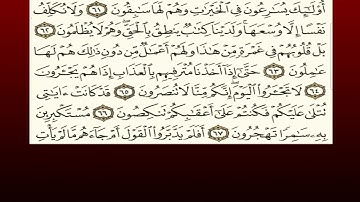 أُولَٰئِكَ يُسَارِعُونَ فِي الْخَيْرَاتِ وَهُمْ لَهَا سَابِقُونَ ٦١ وَلَا نُكَلِّفُ
نَفْسًا إِلَّا وُسْعَهَا وَلَدَيْنَا كِتَابٌ يَنطِقُ بِالْحَقِّ وَهُمْ لَا يُظْلَمُونَ ٦٢
بَلْ قُلُوبُهُمْ فِي غَمْرَةٍ مِّنْ هَٰذَا وَلَهُمْ أَعْمَالٌ مِّن دُونِ ذَٰلِكَ هُمْ لَهَا
عَامِلُونَ ٦٣ حَتَّىٰ إِذَا أَخَذْنَا مُتْرَفِيهِم بِالْعَذَابِ إِذَا هُمْ يَجْأَرُونَ
٦٤ لَا تَجْأَرُوا الْيَوْمَ إِنَّكُم مِّنَّا لَا تُنصَرُونَ ٦٥ قَدْ كَانَتْ آيَاتِي
تُتْلَىٰ عَلَيْكُمْ فَكُنتُمْ عَلَىٰ أَعْقَابِكُمْ تَنكِصُونَ ٦٦ مُسْتَكْبِرِينَ
بِهِ سَامِرًا تَهْجُرُونَ ٦٧ أَفَلَمْ يَدَّبَّرُوا الْقَوْلَ أَمْ جَاءَهُم مَّا لَمْ يَأْتِ